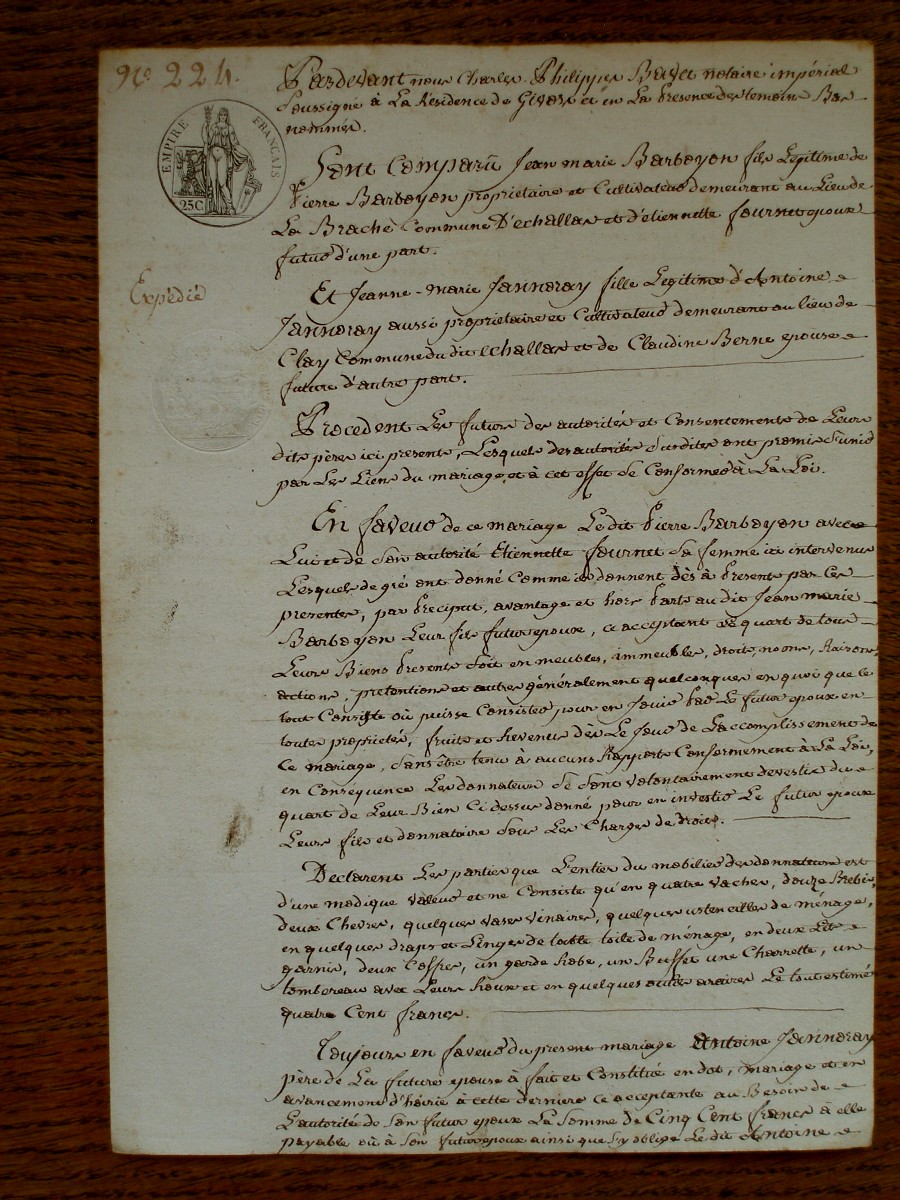 N.o 224.
EMPIRE FRANÇAIS
25C
Expédié
Pardevant nous Charles Philippes Bavet notaire impérial
soussigné à La Résidence de Givors et en La presence des temoins Bas
nommés.
Sont Comparu Jean marie Barboyon fils Legitime de
Pierre Barboyon proprietaire et Cultivateur demeurant au Lieu de
La Brache Commune D'echallas et d'etiennette fournet epoux
futur d'une part.
Et Jeanne-marie Janneray fille Legitime d'Antoine
Janneray aussi proprietaire et Cultivateur demeurant au lieu de
Clay Commune du dit Echallas et de Claudine Berne epouse
future d'autre part.
Procedent Les futurs des autorités et Consentements de Leurs
dits pères ici presents, Lesquels des autorités susdites ont promis s'unir
par Les Liens du mariage et à cet effet se Conformer à La Loi.
En faveur de ce mariage Le dit Pierre Barboyon avec
Lui et de son autorité Etiennette fournet sa femme ici intervenus
Lesquels de gré ont donné Comme ils donnent dès à present par Ces
presentes, par preciput, avantage et hors part au dit Jean marie
Barboyon Leur fils futur epoux, ce acceptant le quart de tous
Leurs Biens presents soit en meubles, immeubles, droits, noms, Raisons,
actions, pretentions et autres généralement quelconques en quoi que le
tout Consiste où puisse Consister pour en Jouir par Le futur epoux en
toutes proprietés, fruits et Revenus dès Le Jour de L'accomplissement de
Ce mariage, sans être tenu à aucuns Rapports Conformement à La Loi,
en Consequence Les donnateurs se sont volontairement devestis du
quart de Leur Bien Ci dessus donné pour en investir Le futur epoux
Leurs fils et donnataire sous Les Charges de droits.
Declarent Les parties que L'entier du mobilier des donnateurs est
d'une modique valeur et ne Consiste qu'en quatre vaches, douze Brebis,
deux Chevres, quelques vases vinaires, quelques ustenciles de ménage,
en quelques draps et Linges de table toile de ménage, en deux Lits
garnis, deux Coffres, un garde Robe, un Buffet une Charrette, un
tombereau avec Leurs Roues et en quelques outils araires Le tout estimé
quatre Cent francs.
Toujours en faveur du present mariage Antoine Janneray
père de La future epouse à fait et Constitué en dot, mariage et en
avancement d'hoirie à cette derniere ce acceptante au Besoin de
L'autorité de son futur epoux La somme de Cinq Cent francs à elle
payable où à son futur epoux ainsi que s'y oblige Le dit Antoine